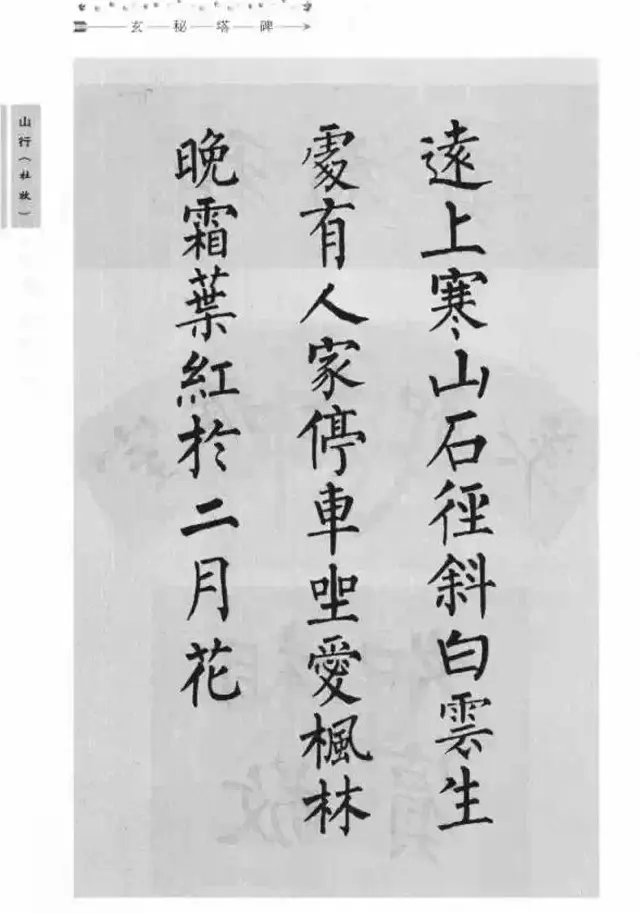 玄秘塔碑
山行（杜牧）
遠上寒山石徑斜白雲生
處有人家停車坐愛楓林
晚霜葉紅於二月花